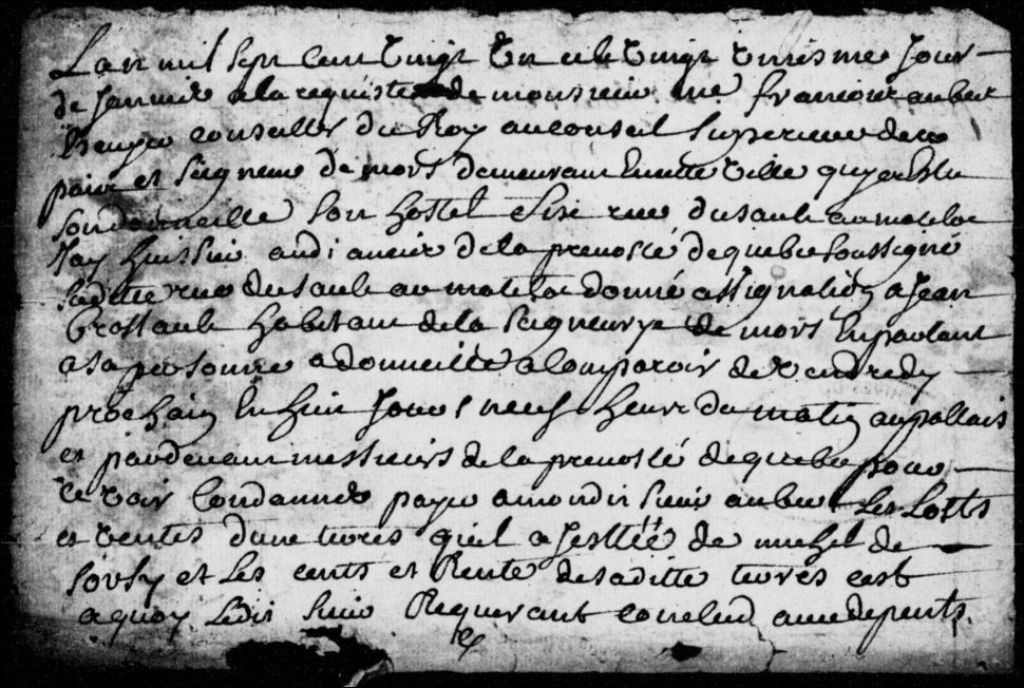 Lan mil sept cent vingt un et le vingt troisme jour
de Janvier a la requiste de monsieur me francois aubert
conseiller du Roy au conseil superieur de ce
paix et seigneur de mors demeurant en cette ville qui a eslu
son domicille son hostel sise rue du sault au matelot
Jay huissier audiancier de la prevosté de quebec soussigné
laditte rue du sault au matelot donné assignation a Jean
brossault habitant de la seigneurye de mors En parlant
a sa personne a domicille a Comparoir de vendredy
prochain En huit Jours neuf heure du matin au pallais
et pardevant messieurs de la prevosté de quebec pour
ce voir Condanner payer a mondit sieur aubert Les Lotts
et ventes dune terres quil a Jesttée de michel de
sorsy et Les cents et Rente de saditte terres cest
a quoy Ledit sieur Requerant conclud avec depents.